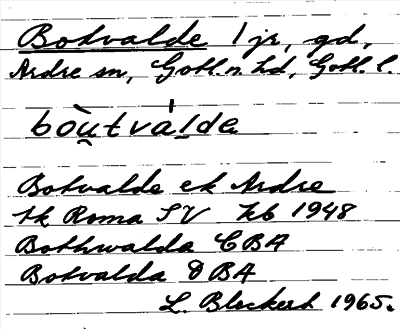 Botvalde 1 jr, gd,
Ardre sn, Gotl. n. hd, Gotl. l.
bòu̯tvàlde
Botvalde ek Ardre
tk Roma SV Kb 1948
Bothwalda CBA
Botvalda DBA
L. Bleckert 1965.